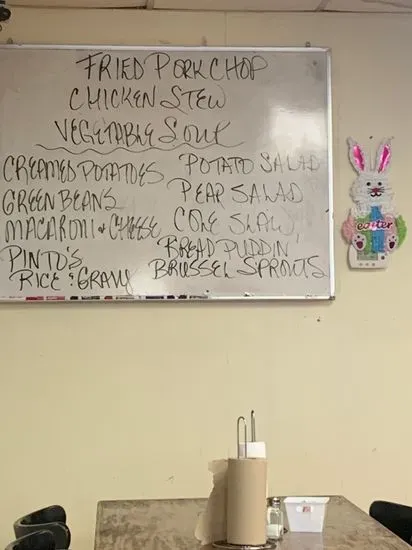 FRIED PORK CHOP
CHICKEN STEW
VEGETABLE SOUP
CREAMED POTATOES
GREEN BEANS
MACARONI & CHEESE
PINTO'S
RICE & GRAVY
POTATO SALAD
PEAR SALAD
COLE SLAW
BREAD PUDDIN
BRUSSEL SPROUTS
easter